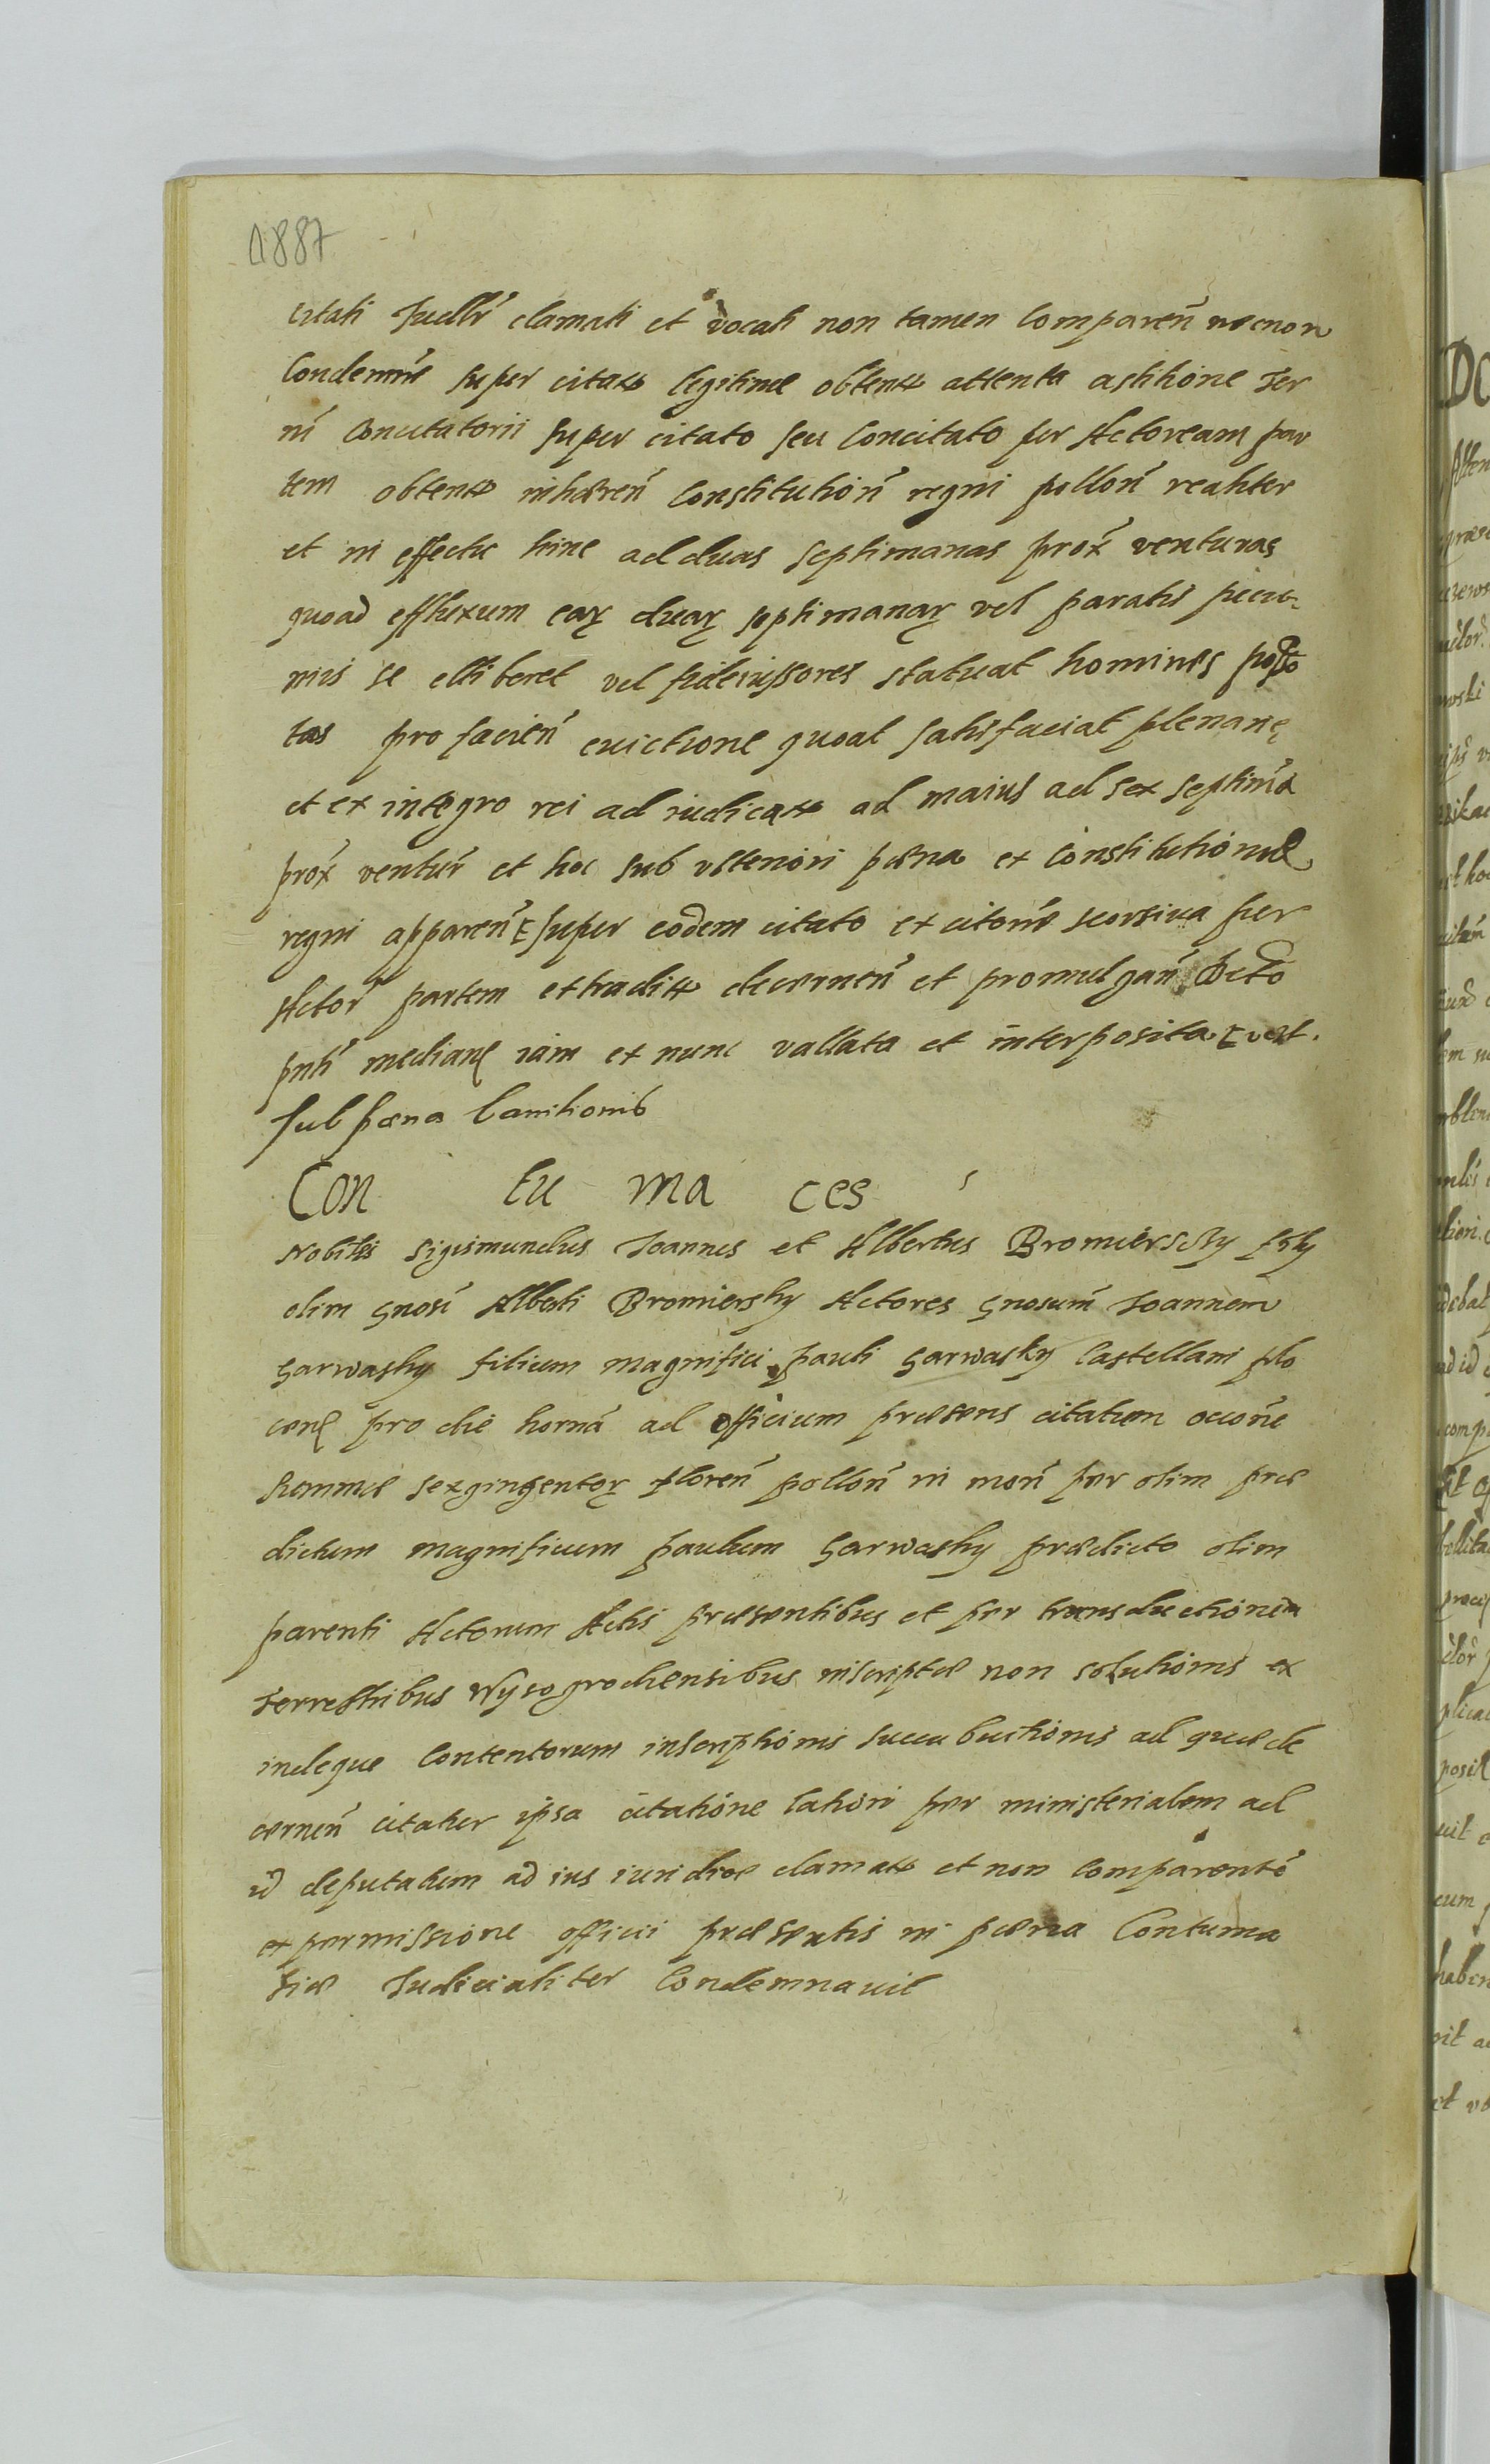 1887
citati Judlr clamati et vocati non tamen Comparen necnon
Condemne super citato legitime obtento attenta astitione Ter
ni Concitatorii super citato seu Concitato per Actoream par
tem obtento inhæren Constitution regni pollon realiter
et in effectu hinc ad duas septimanas prox venturas
quoad effluxum earꝝ duarꝝ septimanarꝝ vel paratis pecu-
niis se elliberet vel fideiussores statuat homines posses
tas pro facien euictione quoad satisfaciat plenarię
et ex integro rei ad iudicatæ ad maius ad sex septima
prox ventur et hoc sub vlteriori pæna ex Constitutione
regni apparen super eodem citato ex citone seorsiua per
Actor partem extradito decernen et promulgan Decto
pnti mediante iam ex nunc vallata et interposita
sub pæna banitionis
Con tu ma ces
Nobiles Sigismundus Joannes et Albertus Bromiersky filii
olim Gnosi Alberti Bromiersky Actores Gnosum Joannem
Garwasky filium magnifici pauli Garwasky Castellani plo
cen pro die horna ad officium præsens citatum occone
summæ sexgingentorꝝ floren pollon in mon per olim præ
dictum magnificum paulum Garwasky prædicto olim
parenti Actorum Actis præsentibus et per transductionem
Terrestribus Wysogrodiensibus inscriptæ non solutionis ex
indeque Contentorum inscriptionis succubutionis ad quæ de
cernen citatur ipsa citatione latiori per ministerialem ad
id deputatum ad ius iuridice clamato et non Comparente
ex permissione officii præsentis in pæna Contuma
tiæ Judicialiter Condemnauit